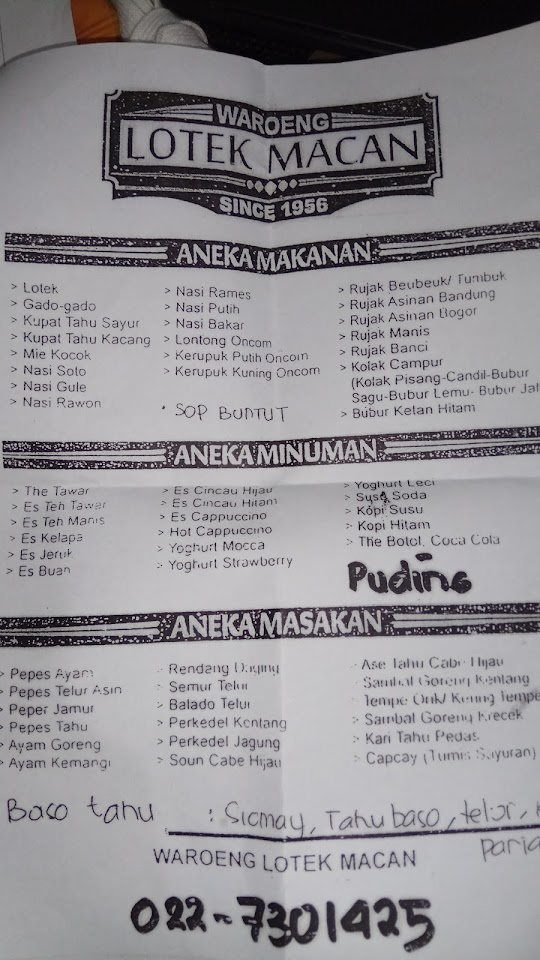 WAROENG
LOTEK MACAN
SINCE 1956
ANEKA MAKANAN
> Lotek
> Gado-gado
> Kupat Tahu Sayur
> Kupat Tahu Kacang
> Mie Kocok
> Nasi Soto
> Nasi Gule
> Nasi Rawon
> Nasi Rames
> Nasi Putih
> Nasi Bakar
> Lontong Oncom
> Kerupuk Putih Oncom
> Kerupuk Kuning Oncom
• SOP BUNTUT
> Rujak Beubeuk/ Tumbuk
> Rujak Asinan Bandung
> Rujak Asinan Bogor
> Rujak Manis
> Rujak Banci
> Kolak Campur
(Kolak Pisang-Candil-Bubur
Sagu-Bubur Lemu- Bubur Jal
> Bubur Ketan Hitam
ANEKA MINUMAN
> The Tawar
> Es Teh Tawar
> Es Teh Manis
> Es Kelapa
> Es Jeruk
> Es Buah
> Es Cincau Hijau
> Es Cincau Hitam
> Es Cappuccino
> Hot Cappuccino
> Yoghurt Mocca
> Yoghurt Strawberry
> Yoghurt Leci
> Susu Soda
> Kopi Susu
> Kopi Hitam
> The Botol, Coca Cola
Puding
ANEKA MASAKAN
> Pepes Ayam
> Pepes Telur Asin
> Peper Jamur
> Pepes Tahu
> Ayam Goreng
> Ayam Kemangi
> Rendang Daging
> Semur Telur
> Balado Telur
> Perkedel Kentang
> Perkedel Jagung
> Soun Cabe Hijau
> Ase Tahu Cabe Hijau
> Sambal Goreng Kentang
> Tempe Orik/ Kering Tempe
> Sambal Goreng Krecek
> Kari Tahu Pedas
> Capcay (Tumis Sayuran)
Baso tahu : Siomay, Tahu baso, telur,
paria
WAROENG LOTEK MACAN
022-7301425